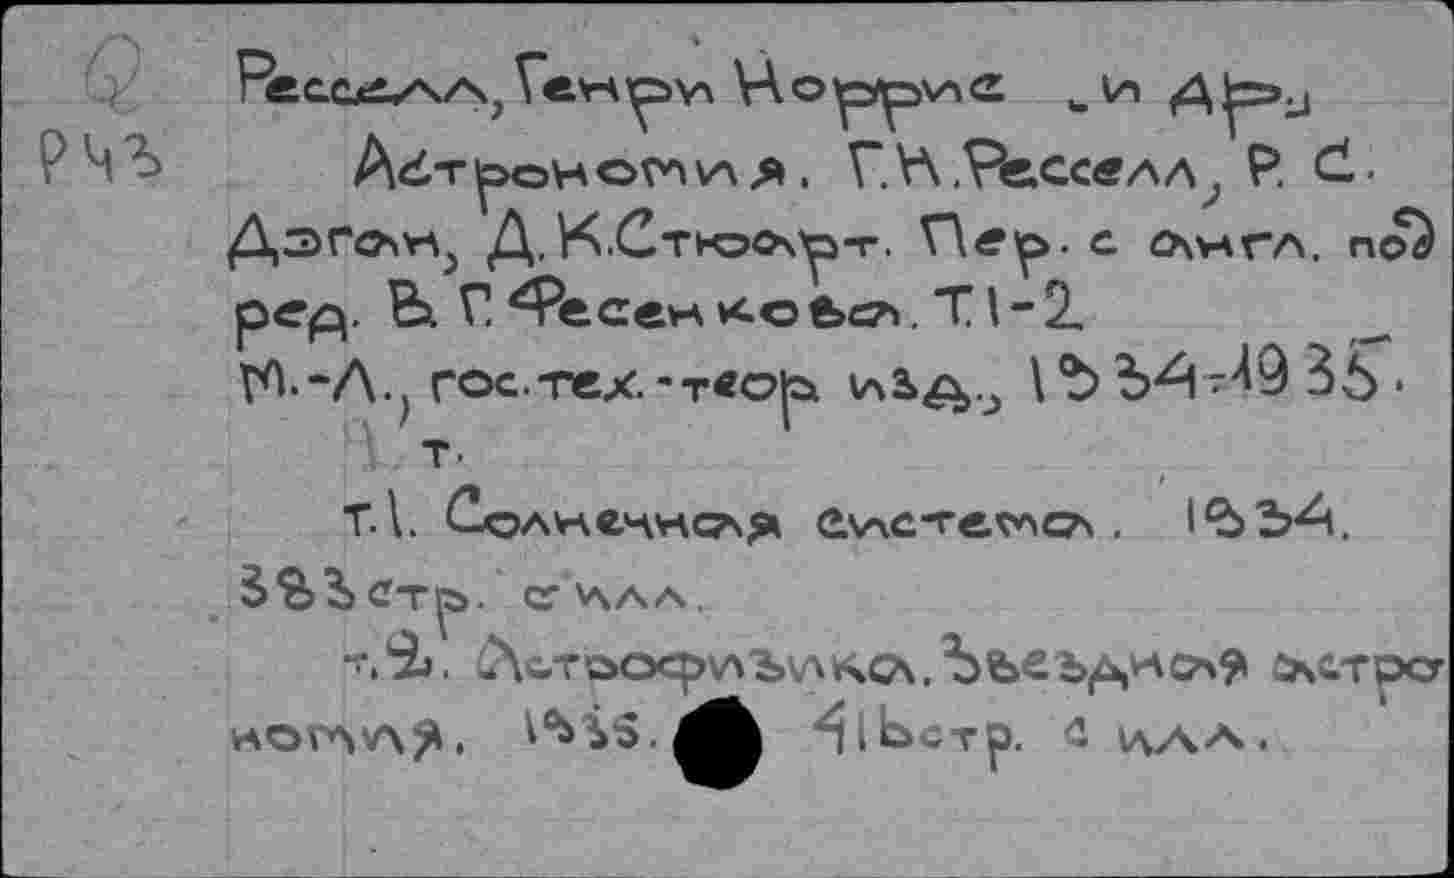 Q Ресселл, Генри Норрис и др.,
Р43 Астрономия. Г.Н.Рессел, Р. С.
Дэган, Д.К.Стюарт. Пер. с англ. под
ред. В. Г. Фесенкова. Т.1-2.
М.-Л., гос.тех.-теор. изд., 1934-1935.
т.
т.1. Солнечная система. 1934.
с илл.
т.2. Астрофизика. Звездная астро
номия. 1935. стр. с илл.